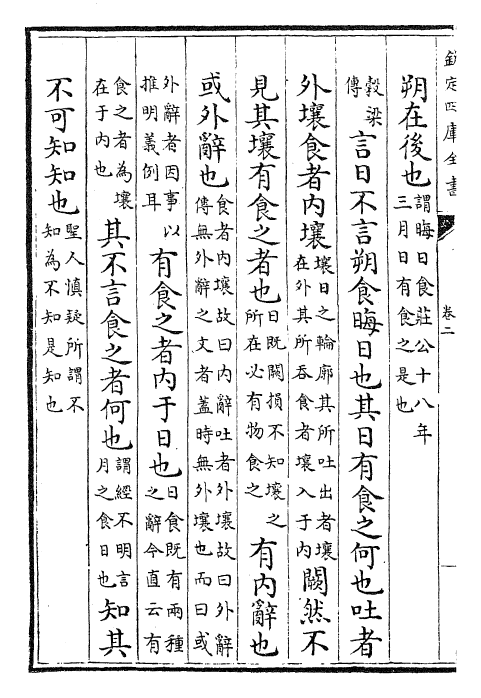 欽定四庫全書 卷二
朔在後也謂晦日食莊公十八年三月日有食之是也
穀梁傳言日不言朔食晦日也其日有食之何也吐者
外壤食者内壤壤日之輪廓其所吐出者壤在外其所吞食者壤入于内闕然不
見其壤有食之者也日既闕損不知壤之所在必有物食之有内辭也
或外辭也食者内壤故曰内辭吐者外壤故曰外辭傳無外辭之文者蓋時無外壤也而曰或
外辭者因事以推明義例耳有食之者内于日也日食既有兩種之辭今直云有
食之者為壤在于内也其不言食之者何也謂經不明言月之食日也知其
不可知知也聖人慎疑所謂不知為不知是知也